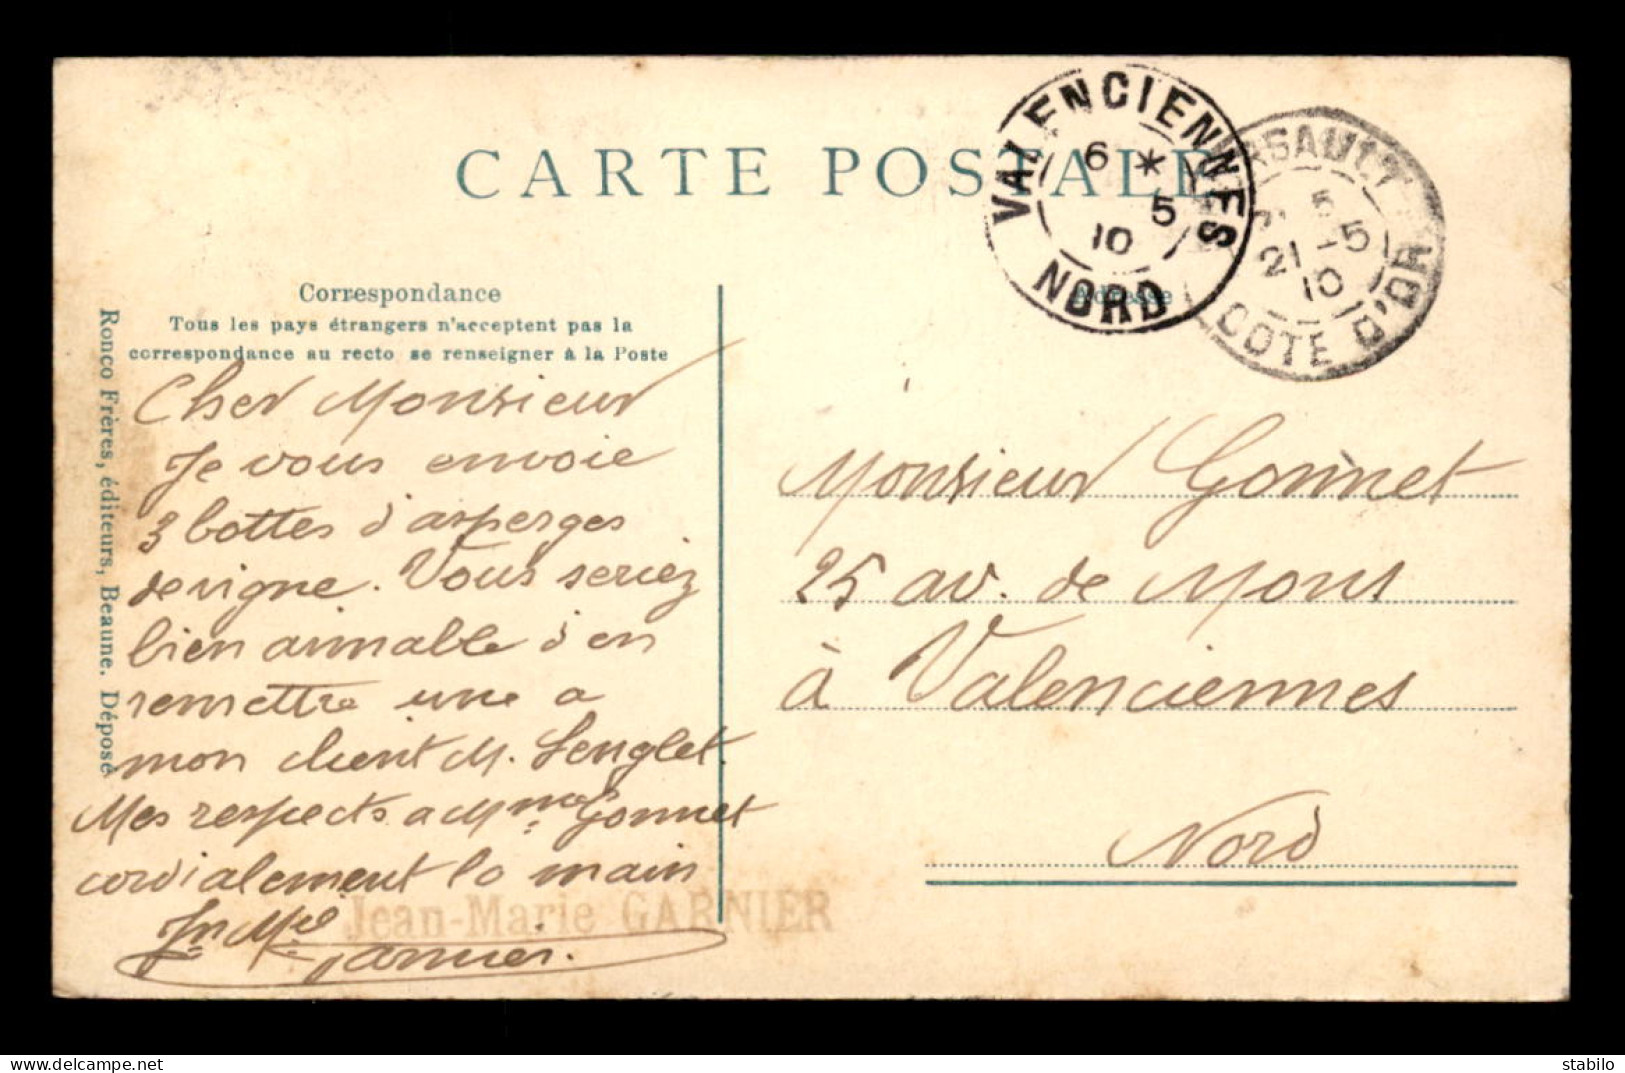 CARTE POSTALE
VALENCIENNES
6 *
5
10
NORD
5
21 -5
10
COTE D'OR
Correspondance
Tous les pays étrangers n'acceptent pas la
correspondance au recto se renseigner à la Poste
Adresse
Ronco Frères, éditeurs, Beaune. Déposé
Cher Monsieur
Je vous envoie
3 bottes d'asperges
de vigne. Vous seriez
bien aimable d'en
remettre une a
mon client M. Lenglet.
Mes respects a Mme Gonnet
cordialement la main
Jn Mie Garnier.
Jean-Marie GARNIER
Monsieur Gonnet
25 av. de Mons
à Valenciennes
Nord
stabilo
www.delcampe.net